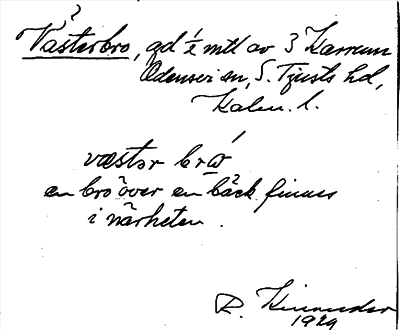 Västerbro, gd ½ mtl av 3 Karrum
Odensvi sn, S. Tjusts hd,
Kalm. l.
væstər brω
en bro över en bäck finnes
i närheten.
R. Kinnander
1929